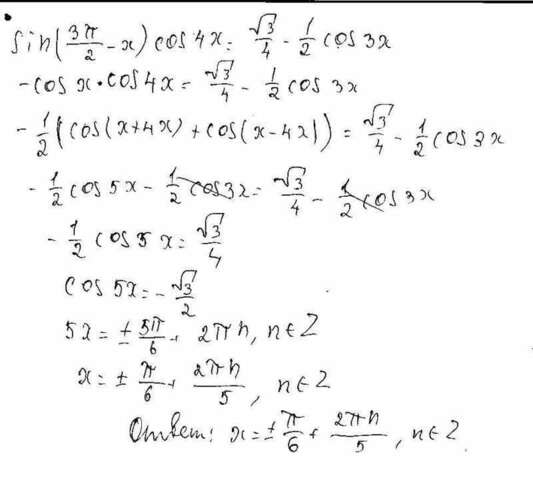 sin(3π/2 - x) cos 4x = √3/4 - 1/2 cos 3x
- cos x · cos 4x = √3/4 - 1/2 cos 3x
- 1/2 (cos(x+4x) + cos(x-4x)) = √3/4 - 1/2 cos 3x
- 1/2 cos 5x - 1/2 cos 3x = √3/4 - 1/2 cos 3x
- 1/2 cos 5x = √3/4
cos 5x = - √3/2
5x = ± 5π/6 + 2πn, n∈Z
x = ± π/6 + 2πn/5, n∈Z
Ответ: x = ± π/6 + 2πn/5, n∈Z.